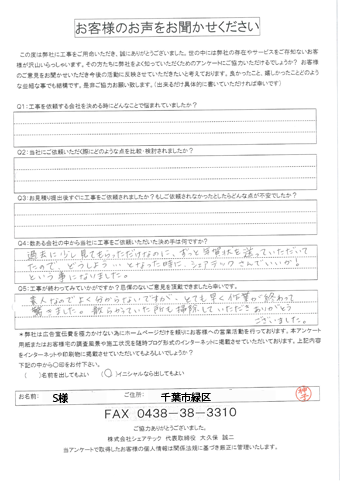 お客様のお声をお聞かせください
この度は弊社に工事をご用命いただき、誠にありがとうございました。世の中には弊社の存在やサービスをご存知ないお客
様が沢山いらっしゃいます。その方たちに弊社をよく知っていただくためのアンケートにご協力いただけるでしょうか? お客様
のご意見をお聞かせいただき今後の活動に反映させていただきたいと考えております。良かったこと、嬉しかったことどのよう
な些細な事でも結構です。是非ご協力お願い致します。(出来るだけ具体的に書いていただければ幸いです)
Q1:工事を依頼する会社を決める時にどんなことで悩まれていましたか?
Q2:当社にご依頼いただく際にどのような点を比較・検討されましたか?
Q3:お見積り提出後すぐに工事をご依頼されましたか?もしご依頼されなかったとしたらどんな点が不安でしたか?
Q4:数ある会社の中から当社に工事をご依頼いただいた決め手は何ですか?
過去に少し見てもらっただけなのに、ずっと年賀状を送っていただいて
たので、どうしよう…となった時に、シェアテックさんでいいか!
という事になりました。
Q5:工事が終わってみていかがですか?忌憚のないご意見を頂戴できましたら幸いです。
素人なのでよく分からないですが、とても早く作業が終わって
驚きました。散らかっていた所も掃除していただきありがとう
ございました。
*弊社は広告宣伝費を極力かけない為にホームページだけを頼りにお客様への営業活動を行っております。本アンケート
用紙またはお客様宅の調査風景や施工状況を随時ブログ形式のインターネットに掲載させていただいております。上記内容
をインターネットや印刷物に掲載させていただいてもよろしいでしょうか?
下記の中から〇印をお付下さい。
( )名前を出してもよい (〇)イニシャルなら出してもよい
お名前: S様 ご住所: 千葉市緑区
FAX 0438-38-3310
ご協力ありがとうございました。
株式会社シェアテック 代表取締役 大久保 誠二
当アンケートで取得したお客様の個人情報は関係法規に基づき厳正に管理いたします。